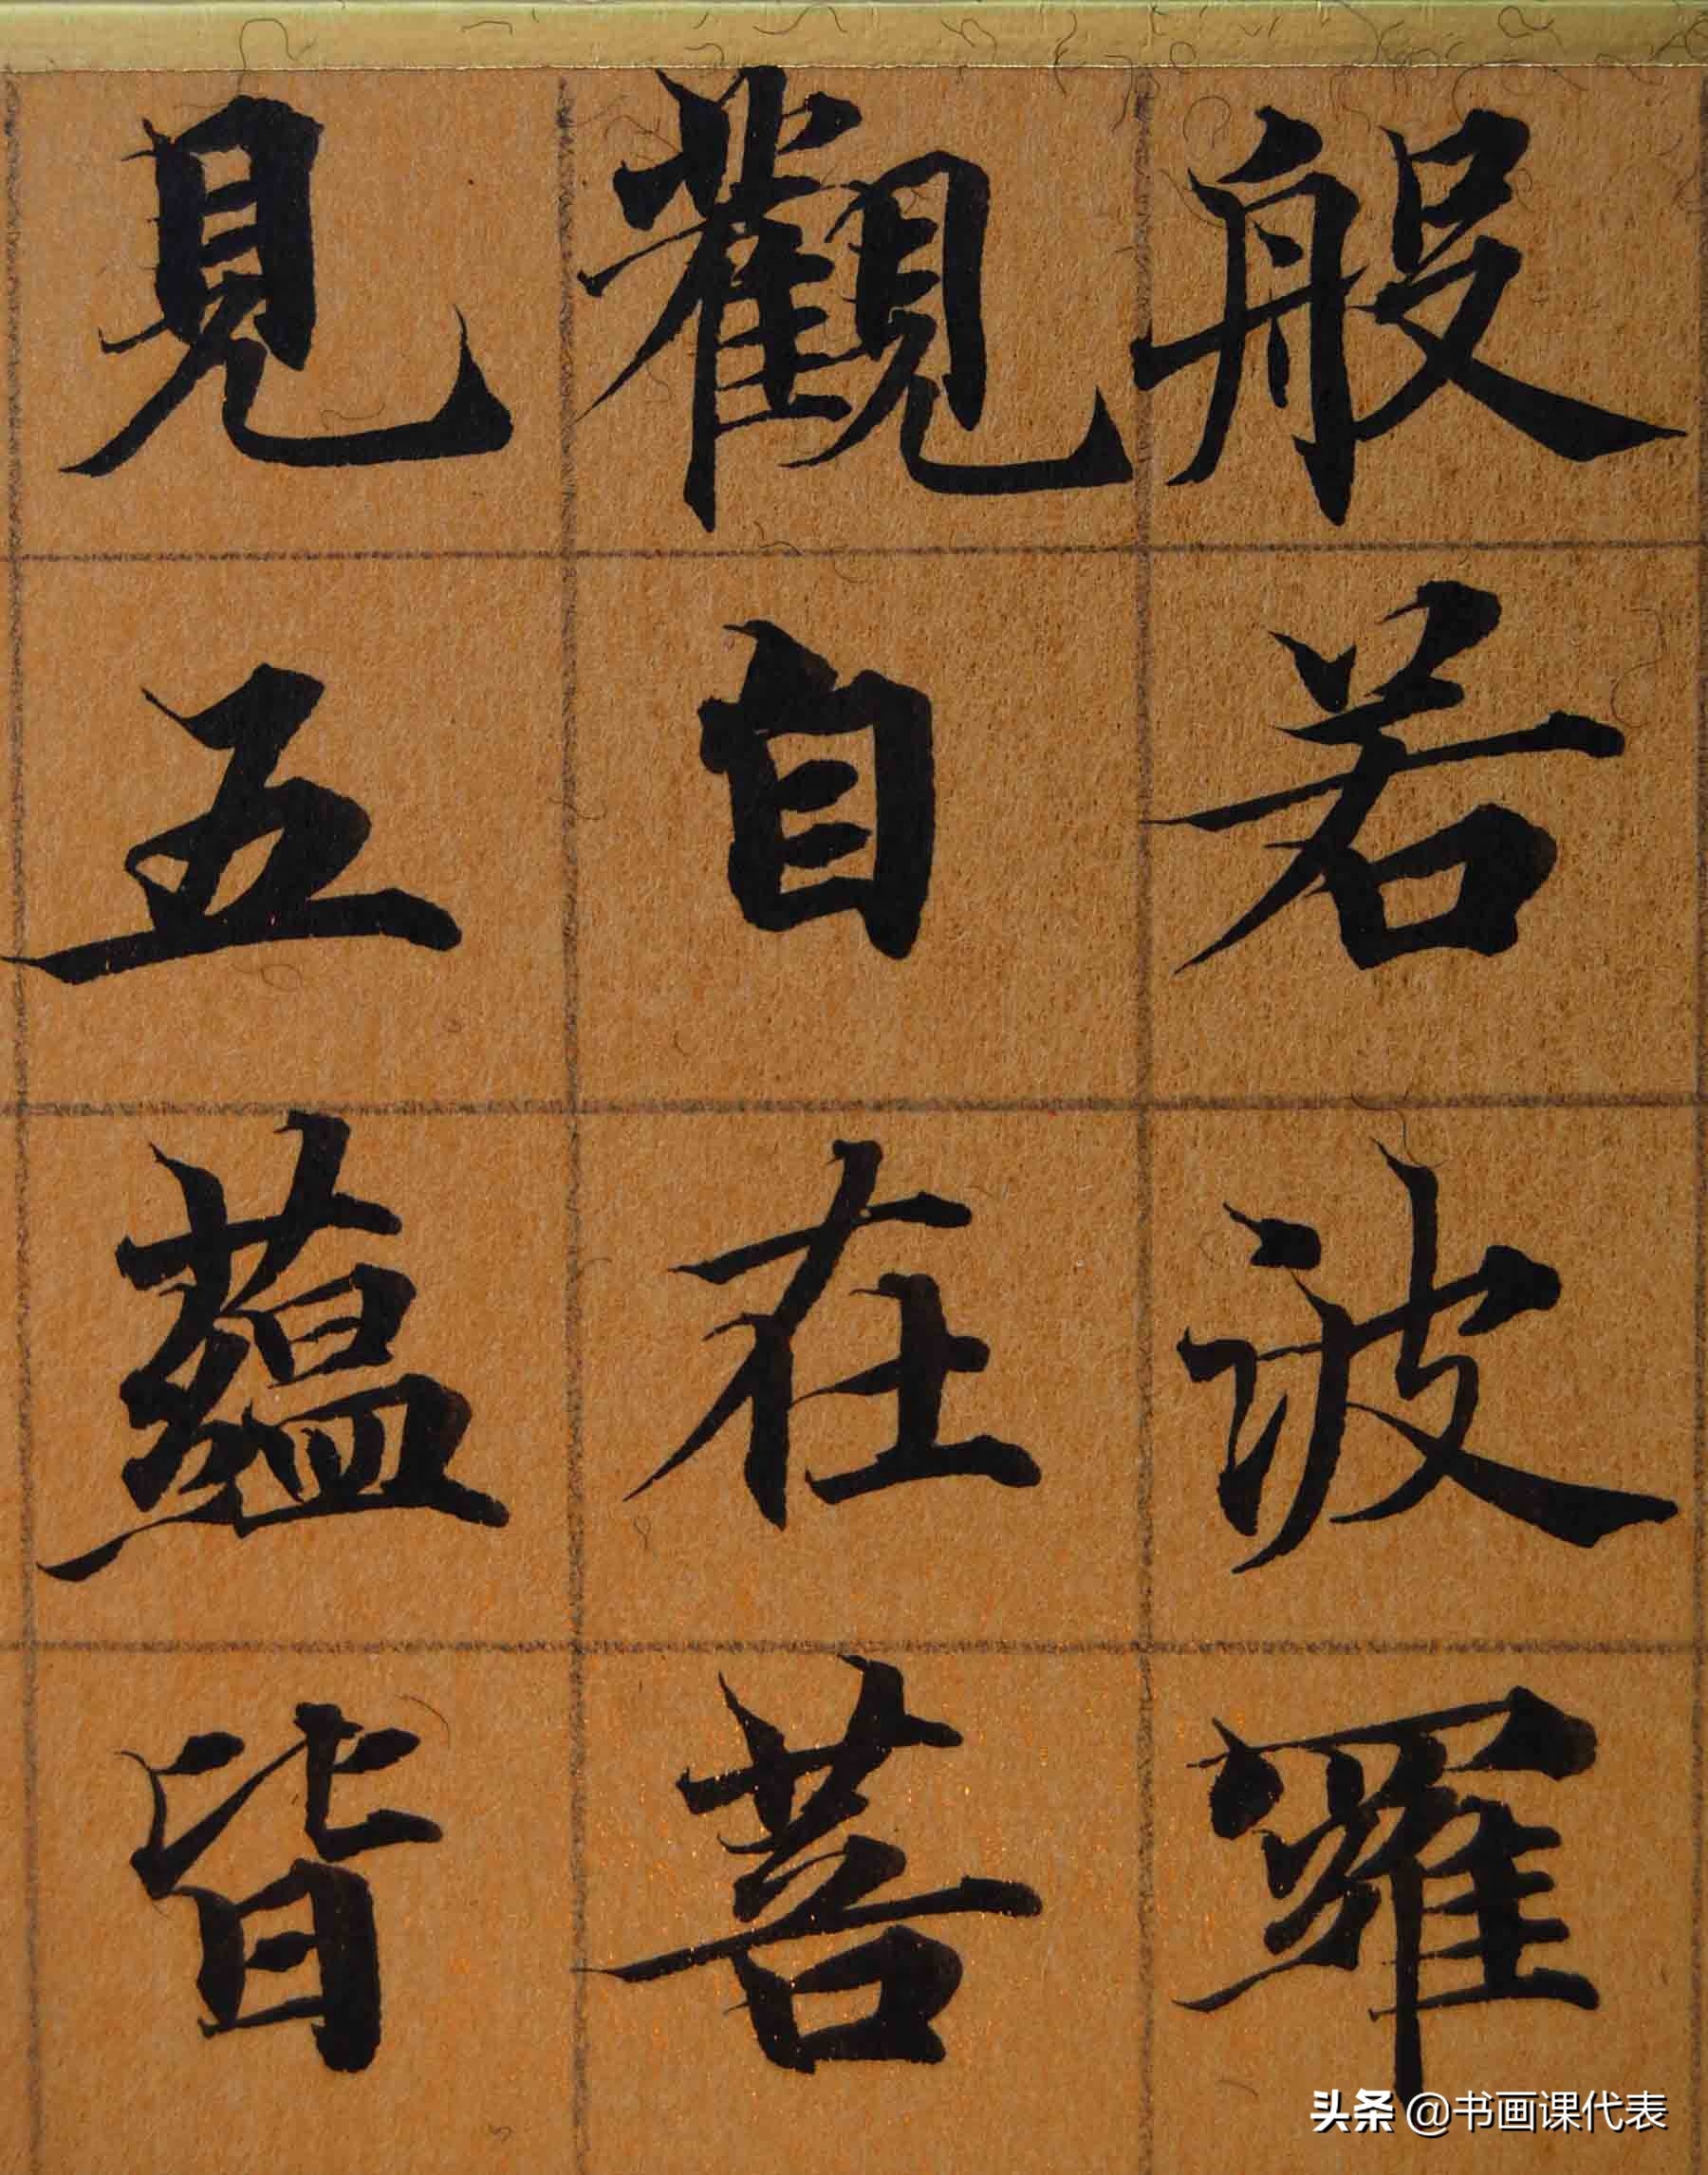 般若波羅
觀自在菩
見五蘊皆
头条 @书画课代表